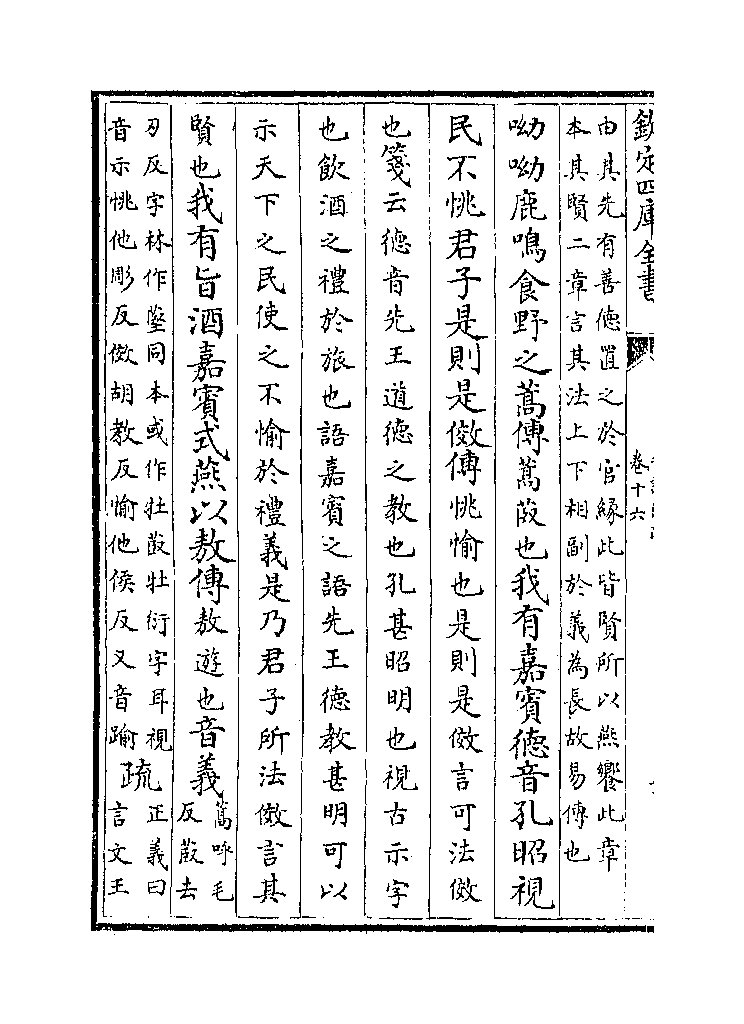 欽定四庫全書
卷十六
由其先有善德置之於官緣此皆賢所以燕饗此章
本其賢二章言其法上下相副於義為長故易傳也
呦呦鹿鳴食野之蒿傳蒿菣也我有嘉賓德音孔昭視
民不恌君子是則是傚傳恌愉也是則是傚言可法傚
也箋云德音先王道德之教也孔甚昭明也視古示字
也飲酒之禮於旅也語嘉賓之語先王德教甚明可以
示天下之民使之不愉於禮義是乃君子所法傚言其
賢也我有旨酒嘉賓式燕以敖傳敖遊也音義蒿呼毛
反菣去
刃反字林作䕃同本或作牡菣牡衍字耳視
音示恌他彫反傚胡教反愉他侯反又音踰
疏正義曰
言文王